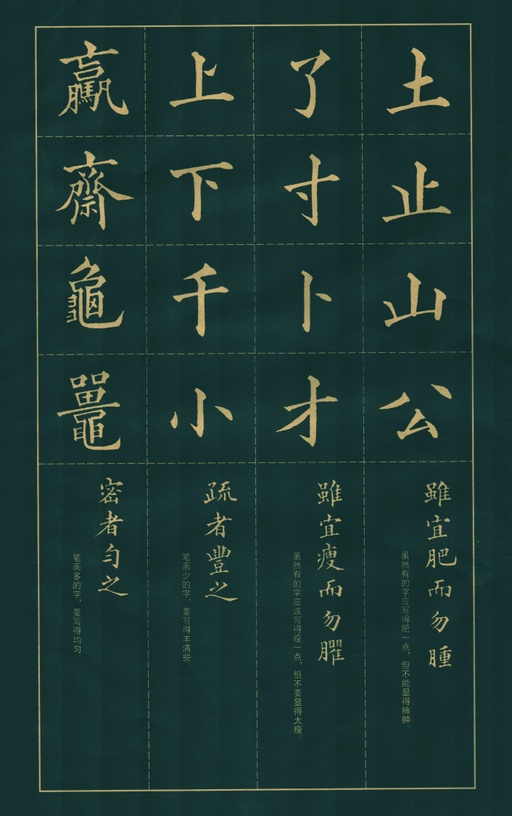 土止山公
雖宜肥而勿腫
虽然有的字应写得肥一点，但不能显得臃肿。
了寸卜才
雖宜瘦而勿臞
虽然有的字应该写得瘦一点，但不要显得太瘦。
上下千小
疏者豐之
笔画少的字，要写得丰满些。
驘齋龜鼉
密者勻之
笔画多的字，要写得均匀